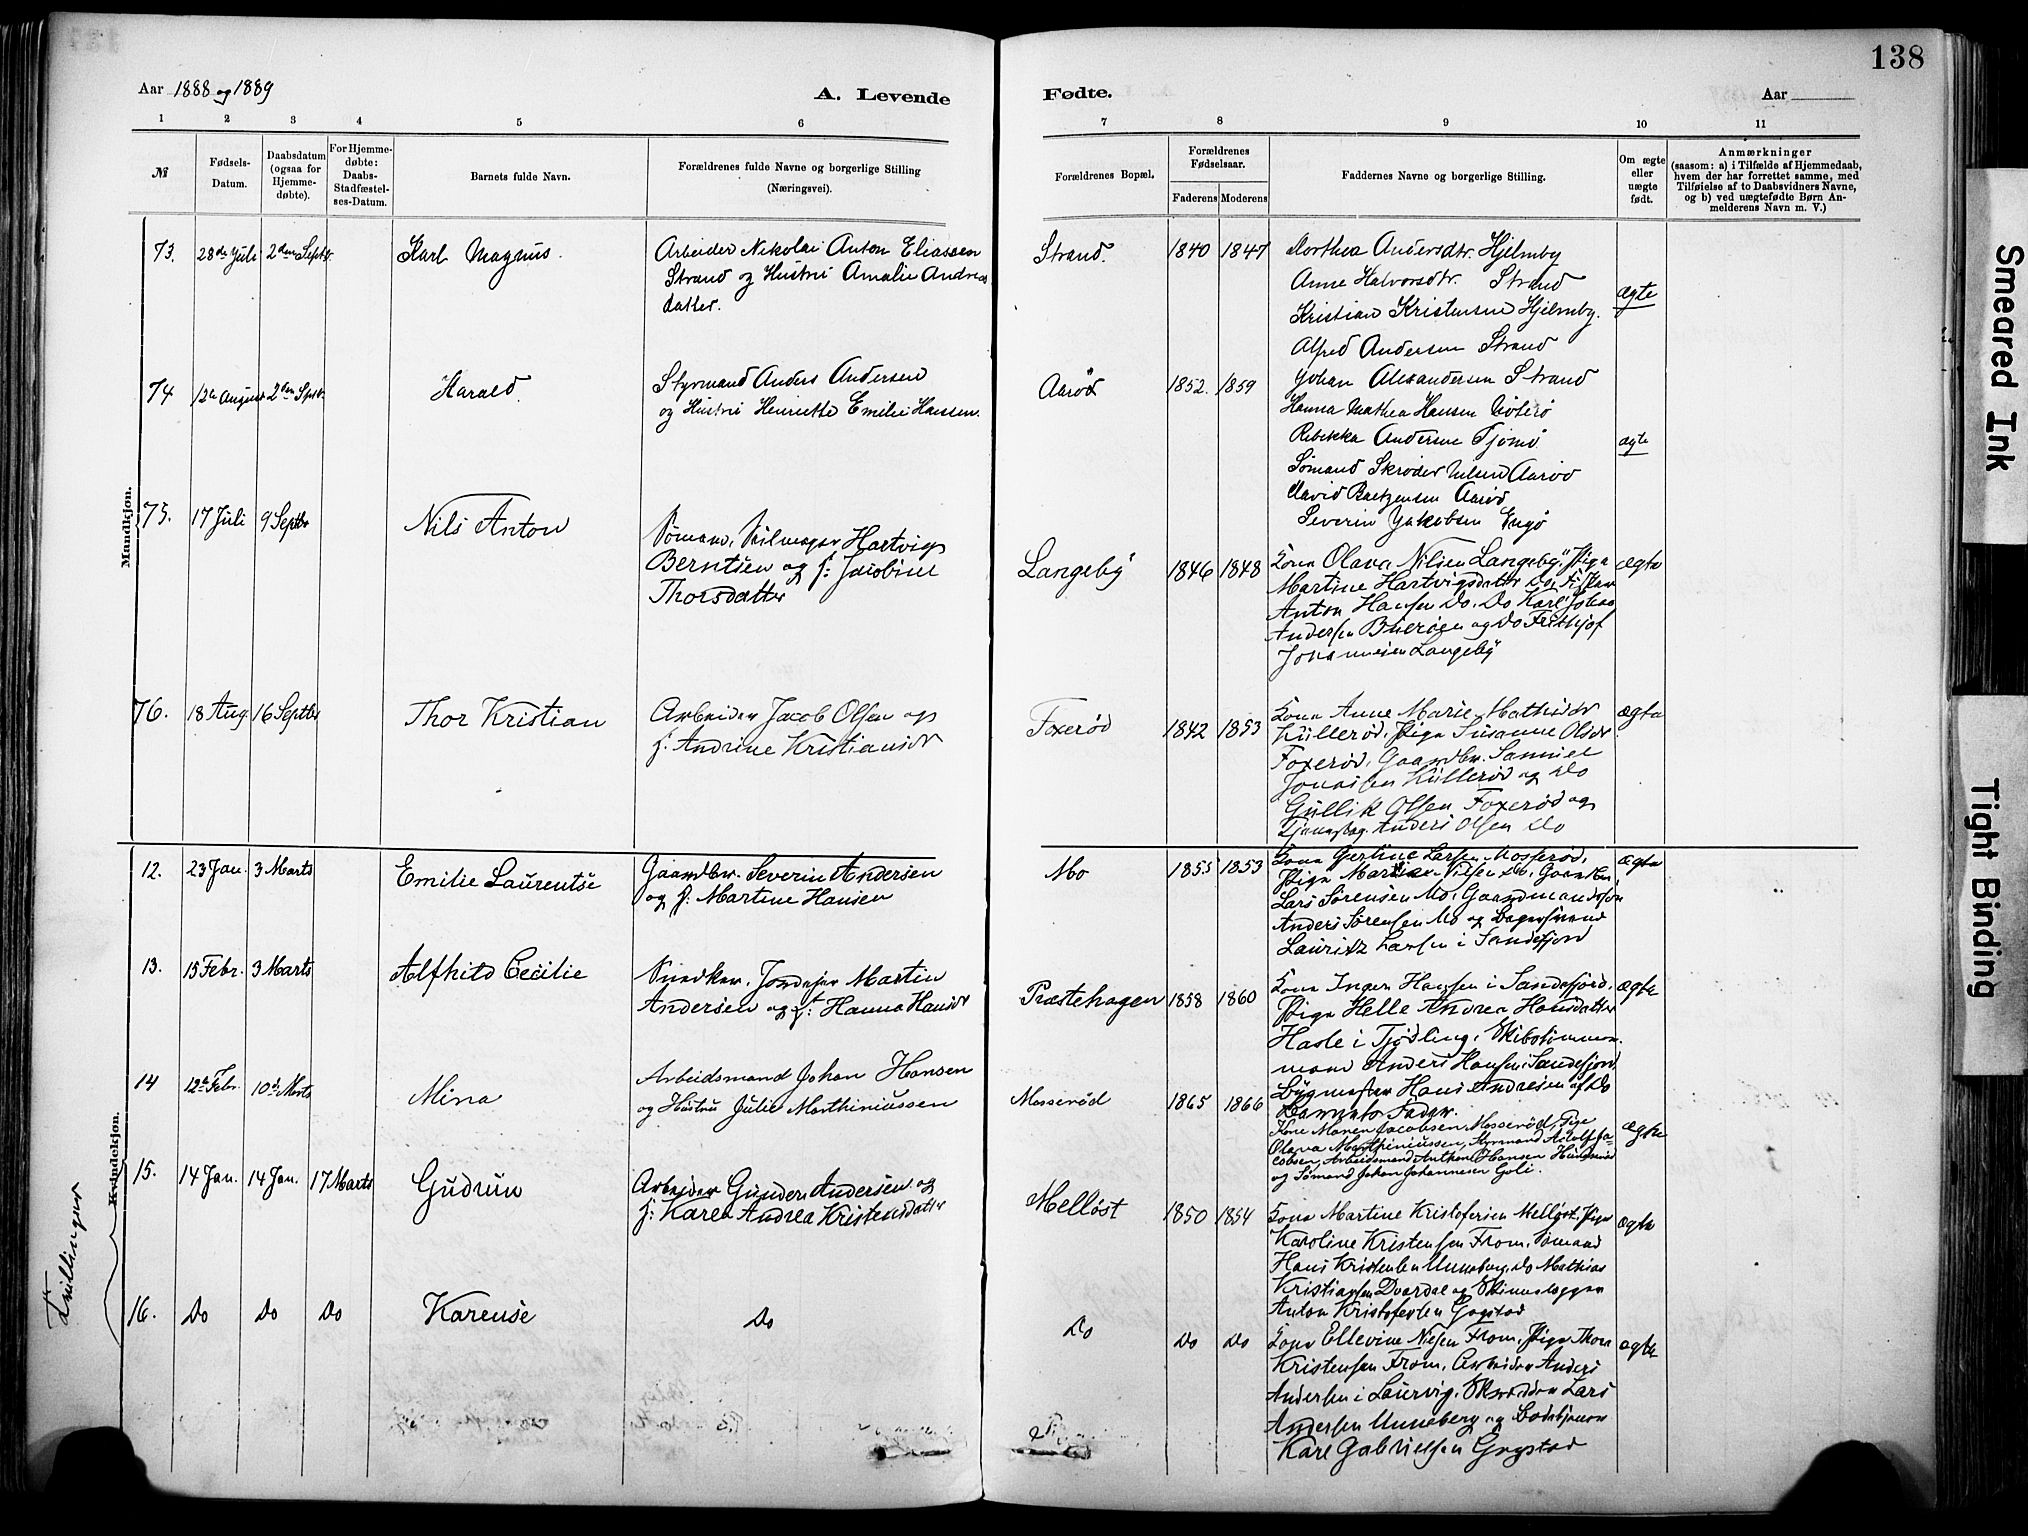 138
Aar 1888 og 1889
A. Levende Fødte.
Aar
1 2 3 4 5 6 7 8 9 10 11
№
Fødsels-Datum.
Daabsdatum (ogsaa for Hjemmedøbte).
For Hjemmedøbte: Daabs-Stadfæstelses-Datum.
Barnets fulde Navn.
Forældrenes fulde Navne og borgerlige Stilling (Næringsvei).
Forældrenes Bopæl.
Forældrenes Fødselsaar.
Faderens Moderens
Faddernes Navne og borgerlige Stilling.
Om ægte eller uægte født.
Anmærkninger
(saasom: a) i Tilfælde af Hjemmedaab,
hvem der har forrettet samme, med
Tilføielse af to Daabsvidners Navne,
og b) ved uægtefødte Børn Anmelderens Navn m. V.)
Mandkjøn.
73. 28de Juli 2den Septbr. Karl Magnus.
Arbeider Nikolai Anton Eliassen
Strand og Hustru Amalie Andreas
datter.
Strand. 1840 1847
Dorthea Andersdtr. Hjelmby
Anne Halvorsdtr. Strand
Kristian Kristensen Hjelmby.
Alfred Andersen Strand
Johan Alexandersen Strand
ægte
74 12te August 2den Septr. Harald.
Styrmand Anders Andersen
og Hustru Henriette Emilie Hansen.
Aarød 1852. 1859
Hanna Mathea Hansen
Rebekka Andersen Tjømø
Sømand Skrøder Nilsen Aarød
David Aarød
Severin Jakobsen Engø
ægte
75. 17 Juli 9 Septbr Nils Anton
Sømand, Hartvig
Berntsen og h: Jacobine
Thorsdatter
Langeby 1846 1848
Kone Olava Nilsen Langeby, Pige
Martine Hartvigsdatter Do,
Anton Hansen Do, Do Karl Johan
Andersen Buerøen og Do Frithjof
Johannesen Langeby
ægte
76. 18 Aug. 16 Septbr Thor Kristian
Arbeider Jacob Olsen og
h: Andrine Kristiansdr
Foxerød 1842 1853
Kone Anne Marie Mathisdr
Küllerød, Pige Susanne Olsdr
Foxerød, Gaardbr. Samuel
Jonassen Küllerød og Do
Gullik Olsen Foxerød og
Anders Olsen Do
ægte
Kvindekjøn.
12. 23 Jan. 3 Marts Emilie Laurentse
Gaardbr. Severin Andersen
og h: Martine Hansen
Mo 1855 1853
Kone Gertine Larsen Mosserød,
Pige Nilsen Mo, Gaardbr.
Lars Sørensen Mo, Gaardmandssøn
Anders Sørensen Mo og Bagersvend
Lauritz Larsen i Sandefjord
ægte
13. 15 Febr. 3 Marts Alfhild Cecilie
Snedker, Martin
Andersen og h: Hanna Hansdr
Præstehagen 1858 1860
Kone Inger Hansen i Sandefjord,
Pige Helle Andrea Hansdatter
Hasle i Tjødling, Skibstømmer-
mand Anders Hansen i Sandefjord
Bygmester Hans Andresen af Do
Barnets Fader.
ægte
14 12te Febr. 10de Marts Mina
Arbeidsmand Johan Hansen
og Hustru Julie Marthiniussen
Mosserød 1865 1866
Kone Maren Jacobsen Mosserød, Pige
Olava Marthiniussen, Styrmand Adolf Ja-
cobsen, Arbeidsmand Anthon Hansen
og Sømand Johan Johannesen Goli.
ægte
Tvillinger
15. 14 Jan. 14 Jan. 17 Marts Gudrun
Arbeider Gunder Andersen og
h: Karen Andrea Kristensdatter
Melløst 1850 1854
Kone Martine Kristofersen Melløst, Pige
Karoline Kristensen From, Sømand
Hans Kristensen Unneberg, Do Mathias
Kristiansen Dverdal og
Anton Kristofersen Gogstad
ægte
16. Do Do Do Karense
Do
Do Do Do
Kone Ellevine Nilsen From, Pige Thora
Kristensen From, Arbeider Anders
Andersen i Laurvig, Skrædder Lars
Andersen Unneberg og
Karl Gabrielsen Gogstad
ægte
Smeared Ink
Tight Binding